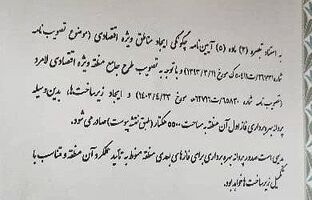 به استناد تبصره (۲) ماده (۵) آیین‌نامه چگونگی ایجاد مناطق ویژه اقتصادی (موضوع تصویب‌نامه
شماره مورخ و با توجه به تصویب طرح جامع منطقه ویژه اقتصادی لامرد
(تصویب نامه شماره مورخ ۱۴۰۳/۴/۳) و ایجاد زیرساخت‌ها، بدین‌وسیله
پروانه بهره‌برداری فاز اول آن منطقه به مساحت ۵۵۰۰ هکتار (طبق نقشه پیوست) صادر می‌شود.
بدیهی است صدور پروانه بهره‌برداری برای فازهای بعدی منطقه منوط به تأیید عملکرد آن منطقه و متناسب با
تکمیل زیرساخت‌ها خواهد بود.